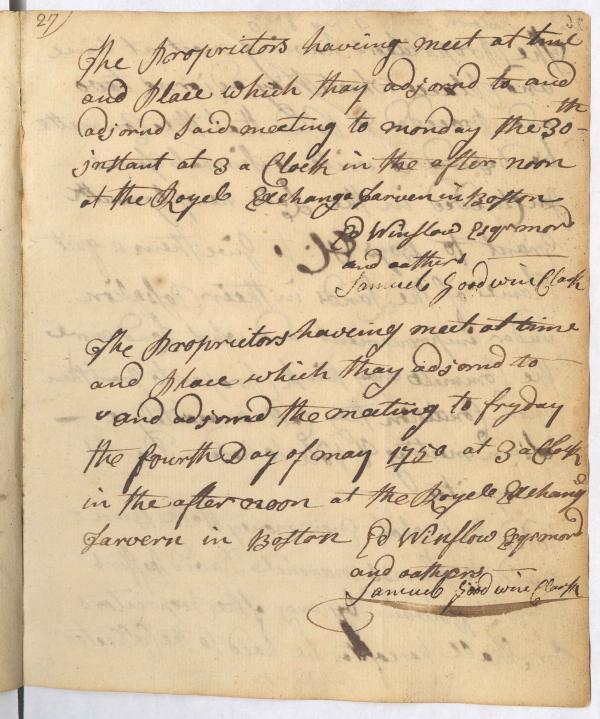 27
The Proprietors haveing meet at time
and Place which thay adjornd to and
adjornd Said meeting to monday the 30th
instant at 3 a Clock in the after noon
at the Royel Exchange Tarven in Boston
Ed Winslow Esqr mord
and oathers
Samuel Goodwin Clark
The Proprietors haveing meet at time
and Place which thay adjornd to
and adjornd the meeting to fryday
the fourth Day of may 1750 at 3 a Clock
in the after noon at the Royele Exchang
Tarvern in Boston Ed Winslow Esqr mord
and oathers
Samuel Goodwin Clark